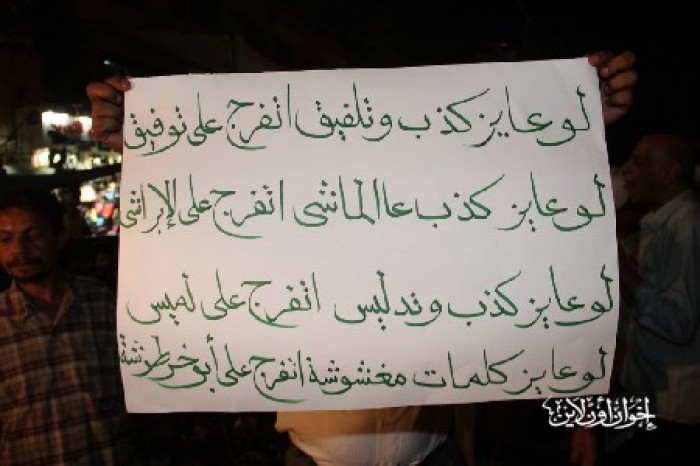 لو عايز كذب وتلفيق اتفرج على توفيق
لو عايز كذب عاالماشى اتفرج على الإبراشى
لو عايز كذب وتدليس اتفرج على لميس
لو عايز كلمات مغشوشة اتفرج على أبو خرطوشة
إخوان أون لاين